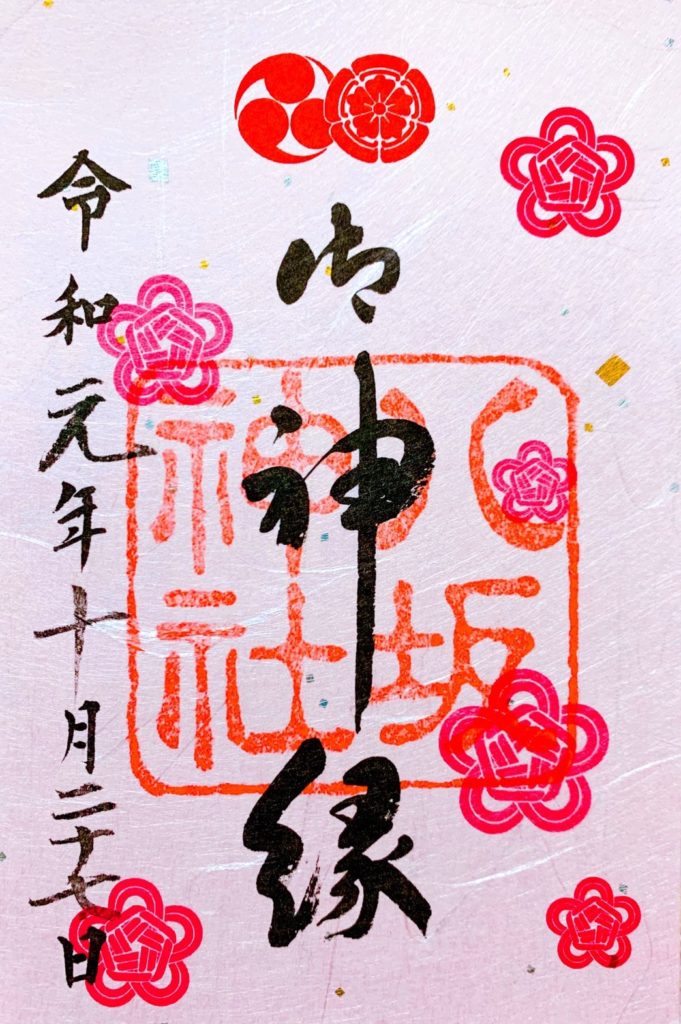 御神縁
八坂
神社
令和元年十月二十七日